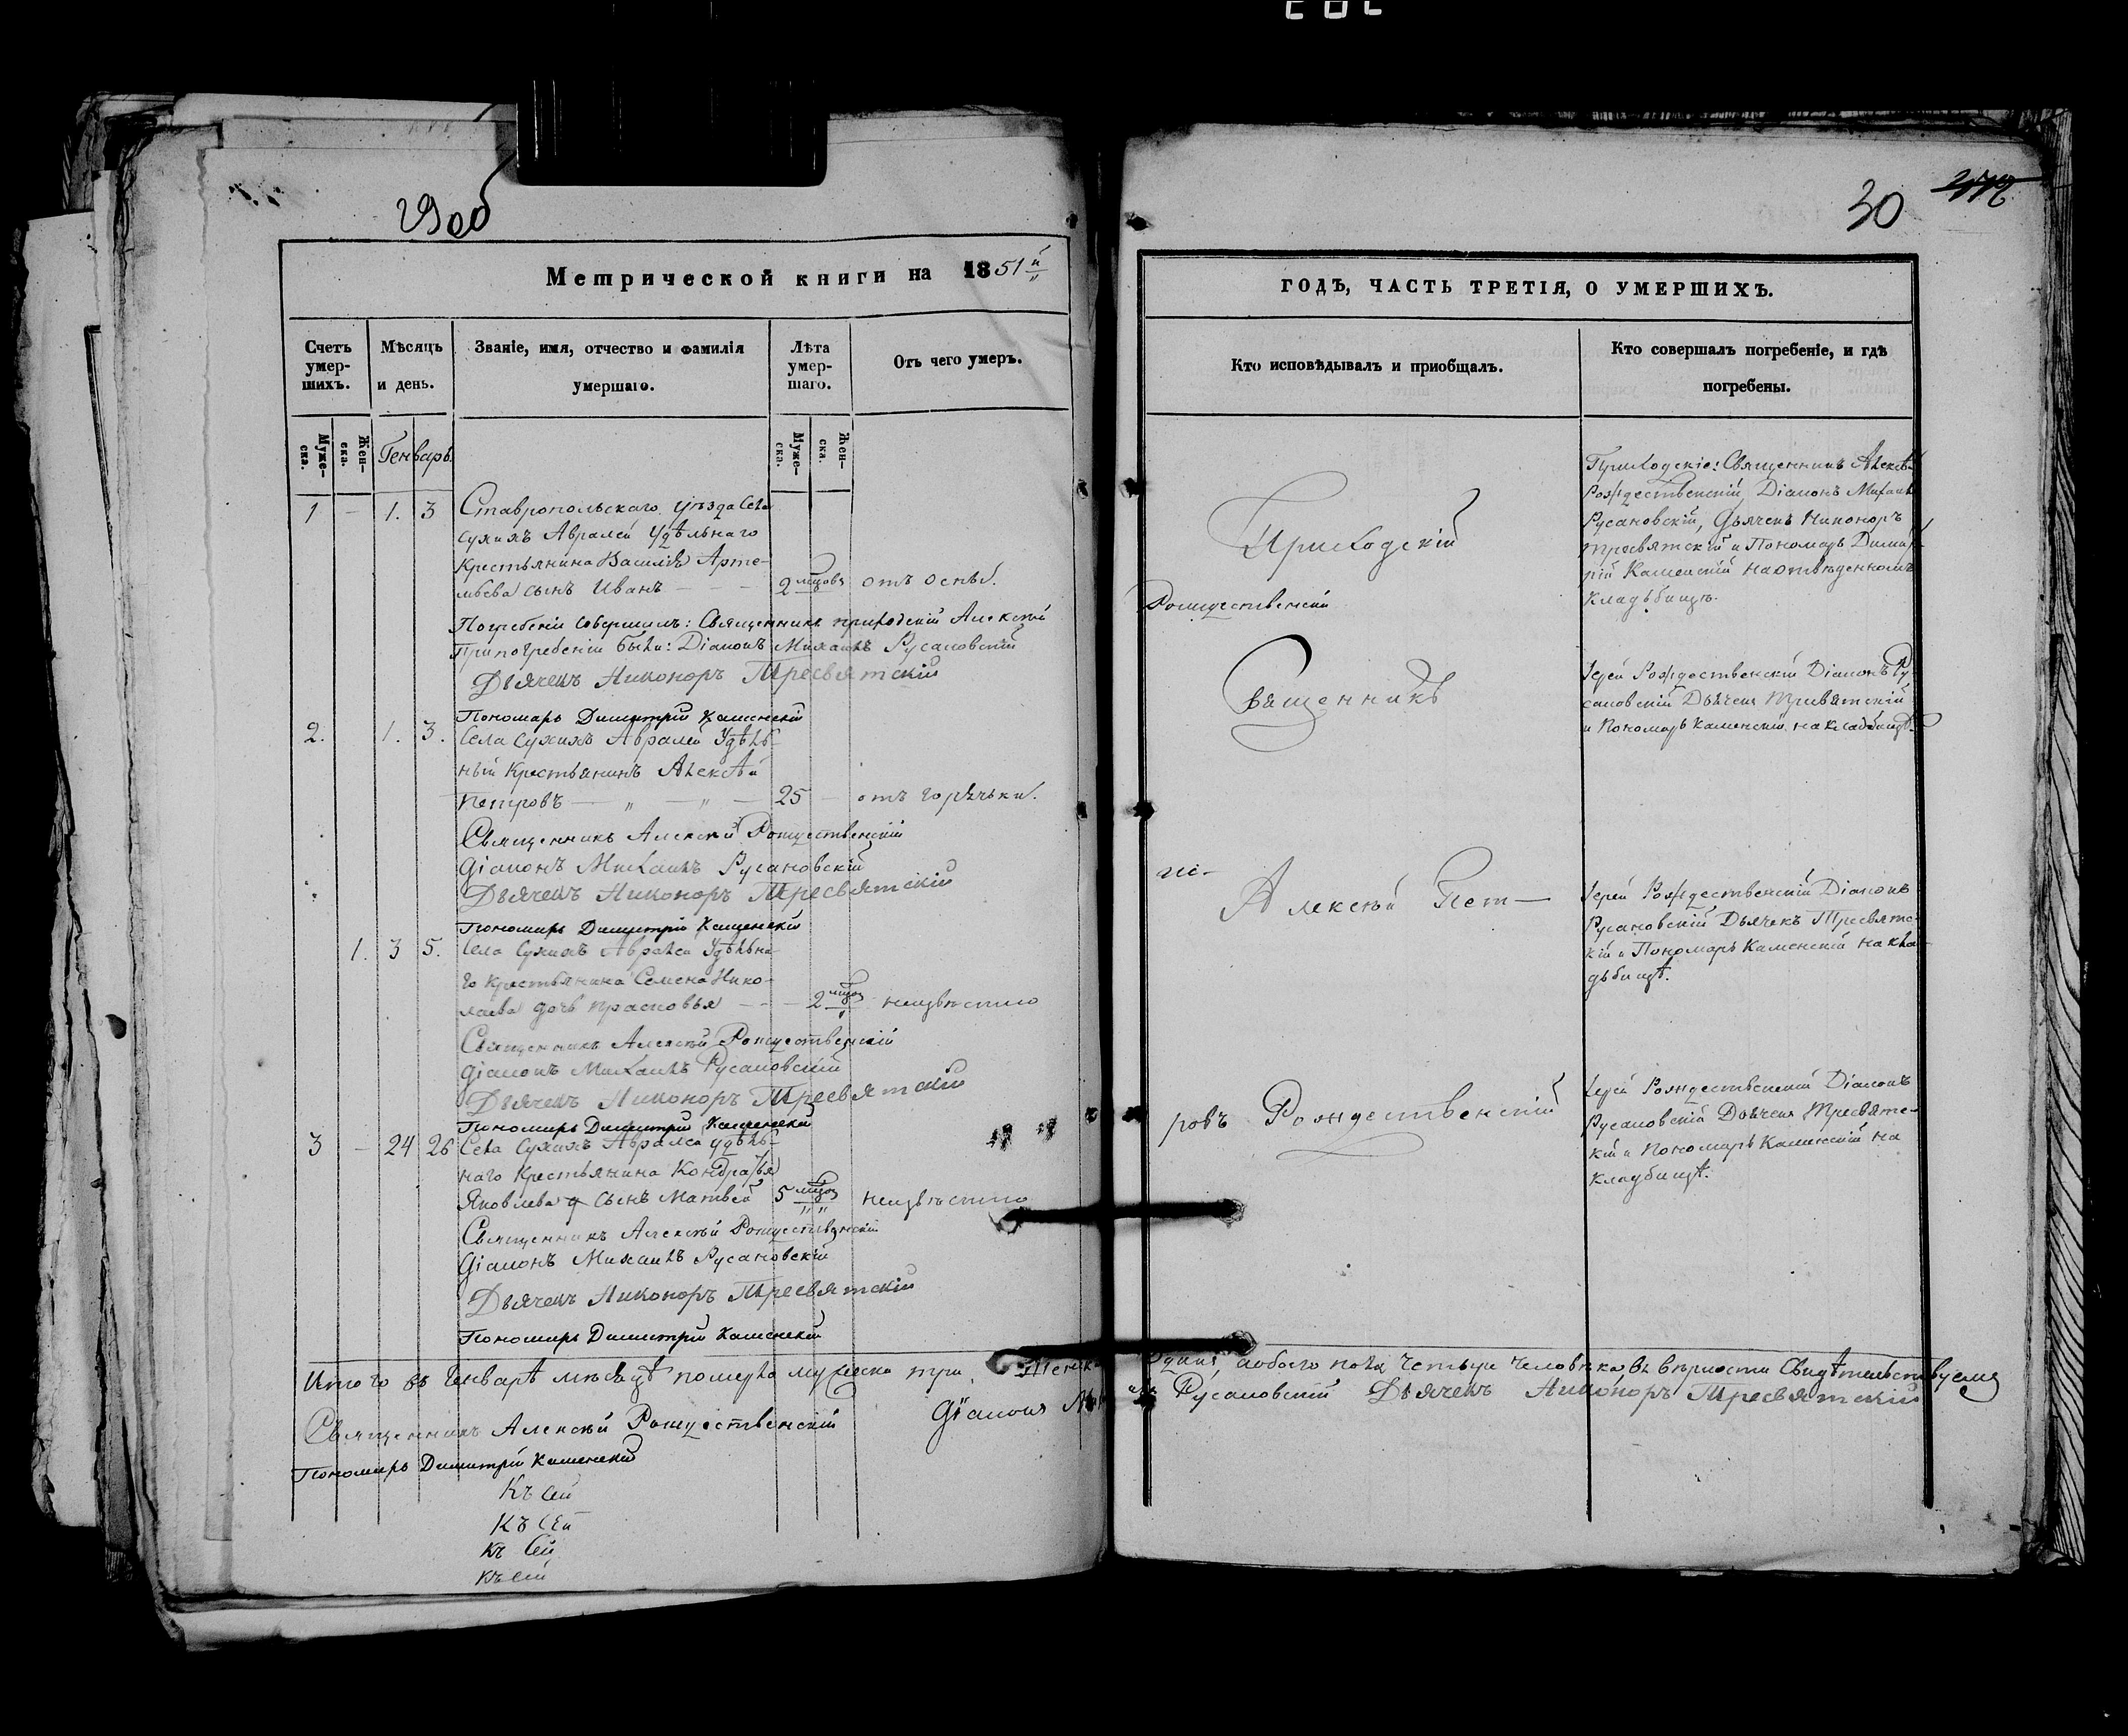 29об
Метрической книги на 1851й
Счетъ умер-шихъ.
Мѣсяцъ и день.
Званіе, имя, отчество и фамилія умершаго.
Лѣта умер-шаго.
Отъ чего умеръ.
Муже-ска.
Жен-ска.
Генварь.
Муже-ска.
Жен-ска.
1 - 1. 3 Ставропольскаго уѣзда Села
Сухихъ Авралей Удѣльнаго
Крестьянина Василія Арте-
мьева сынъ Иванъ - - - 2 мцовъ отъ оспы.
Погребеніе совершилъ: Священникъ приходскій Алексѣй Рождественскій
При погребеніи были: Діаконъ Михаилъ Русановскій
Дьячекъ Никоноръ Тресвятскій
Пономарь Димитрій Каменскій
2. 1. 3. Села Сухихъ Авралей Удѣль-
ный Крестьянинъ Алексѣй
Петровъ - „ - „ - 25 - отъ горячьки.
Священникъ Алексѣй Рождественскій
Діаконъ Михаилъ Русановскій
Дьячекъ Никоноръ Тресвятскій
Пономарь Димитрій Каменскій
1. 3 5. Села Сухихъ Авралей Удѣльна-
го крестьянина Семена Нико-
лаева дочь Прасковья - - - 2 мцов неизвѣстно
Священникъ Алексѣй Рождественскій
Діаконъ Михаилъ Русановскій
Дьячекъ Никоноръ Тресвятскій
Пономарь Димитрій Каменскій
3 - 24 26 Села Сухихъ Авралей удѣль-
наго Крестьянина Кондратья
Яковлева сынъ Матвей 5 мцов неизвѣстно
Священникъ Алексѣй Рождественскій
Діаконъ Михаилъ Русановскій
Дьячекъ Никоноръ Тресвятскій
Пономарь Димитрій Каменскій
Итого въ Генварѣ мѣсяцѣ померло мужеска три, женска
Священникъ Алексѣй Рождественскій Діаконъ Ми
Пономарь Димитрій Каменскій
Къ сей
Къ сей
Къ сей
Къ сей
30
ГОДЪ, ЧАСТЬ ТРЕТІЯ, О УМЕРШИХЪ.
Кто исповѣдывалъ и приобщалъ.
Кто совершалъ погребеніе, и гдѣ погребены.
Приходскій
Священникъ
Алексѣй Пет-
ровъ Рождественскій
Приходскіе: Священникъ Алексѣй
Рождественскій, Діаконъ Михаилъ
Русановскій, Дьячекъ Никоноръ
Тресвятскій и Пономарь Димит-
рій Каменскій на отведенномъ
кладьбищѣ.
Іерей Рождественскій Діаконъ Ру-
сановскій Дьячекъ Тресвятскій
и Пономарь Каменскій на кладбищѣ.
Іерей Рождественскій Діаконъ
Русановскій Дьячекъ Тресвятс-
кій и Пономарь Каменскій на кла-
дьбищѣ.
Іерей Рождественскій Діаконъ
Русановскій Дьячекъ Тресвятс-
кій и Пономарь Каменскій на
кладбищѣ.
одина, обоего пола четыре человѣка въ вѣрности свидѣтельствуемъ
Русановскій Дьячекъ Никоноръ Тресвятскій